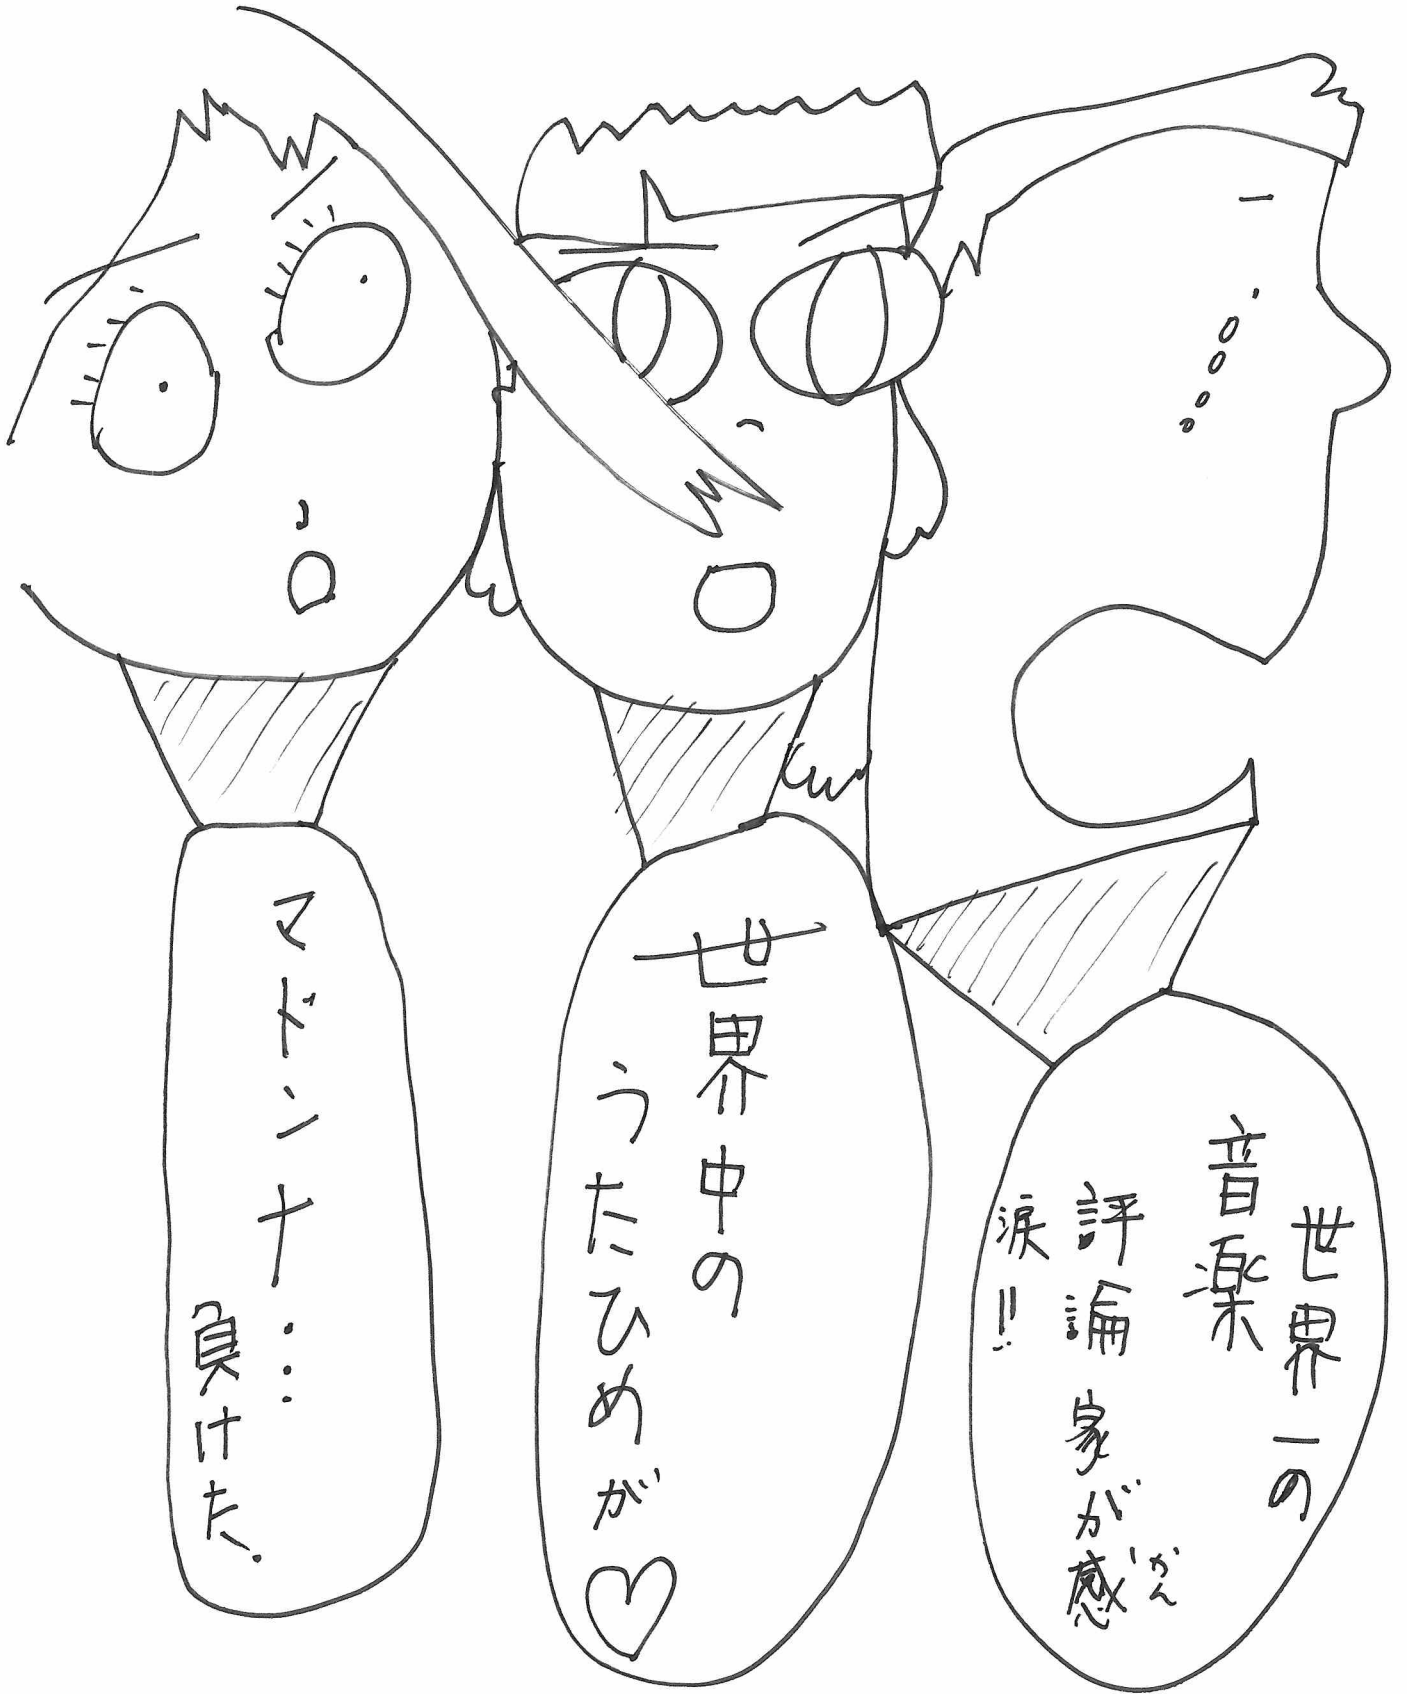 世界一の
音楽
評論家が感
かん
涙!!
世界中の
うたひめが♡
マドンナ…
負けた.